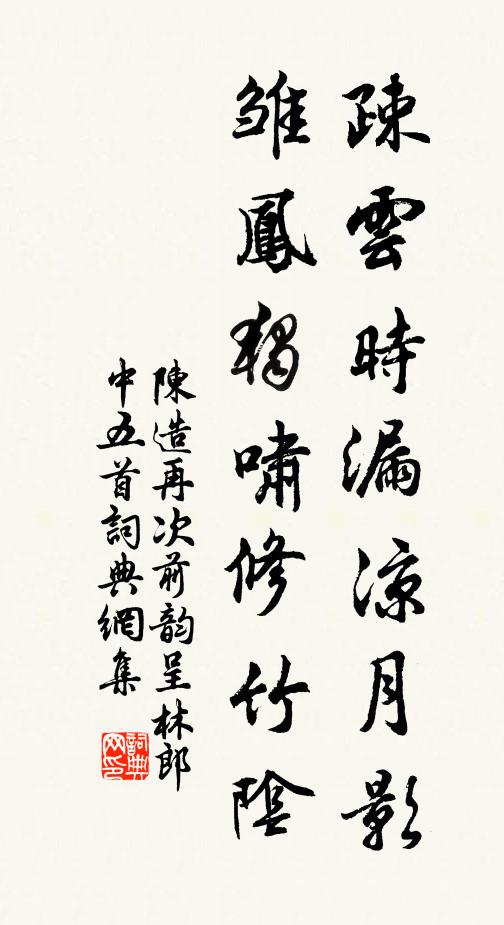 疎雲時漏涼月影
雛鳳獨嘯修竹陰
陳造再次前韵呈林郎
中五首詞典網集
詞典
网印